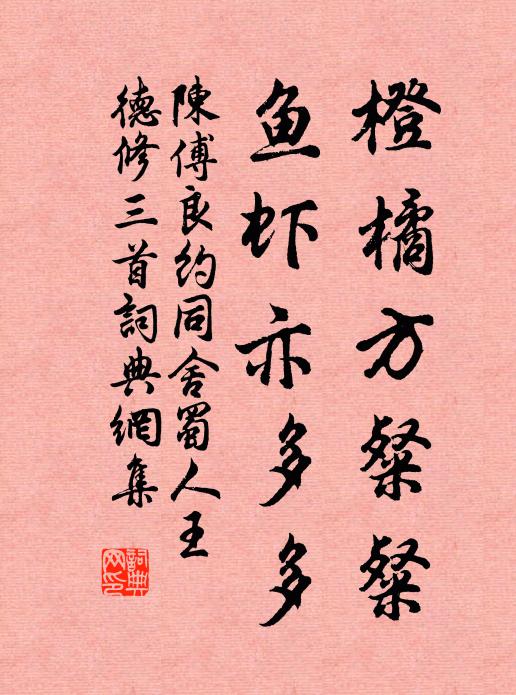 橙橘方粲粲
鱼虾亦多多
陳傅良約同舍蜀人王
德修三首詞典網集
詞典網印